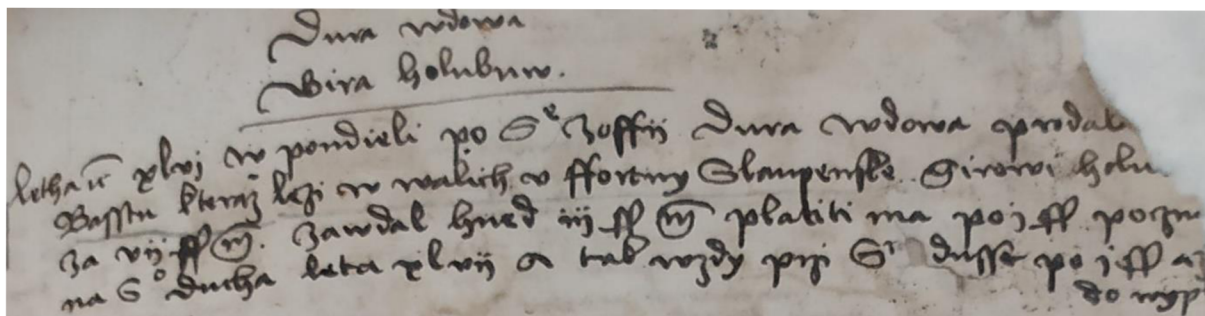 Dura wdowa
Vira holubuw.
letha xlvj w pondieli po Se zoffij Dura wdowa prodala
Basstu kteraz lezi w walich v ffortny Slaupenske Girowi holu
za vij ff m. zawdal hned iij ff m platiti ma po j ff poczn
na So ducha leta xlvij a tak wzdy przi S dusse po j ff az
do wyp